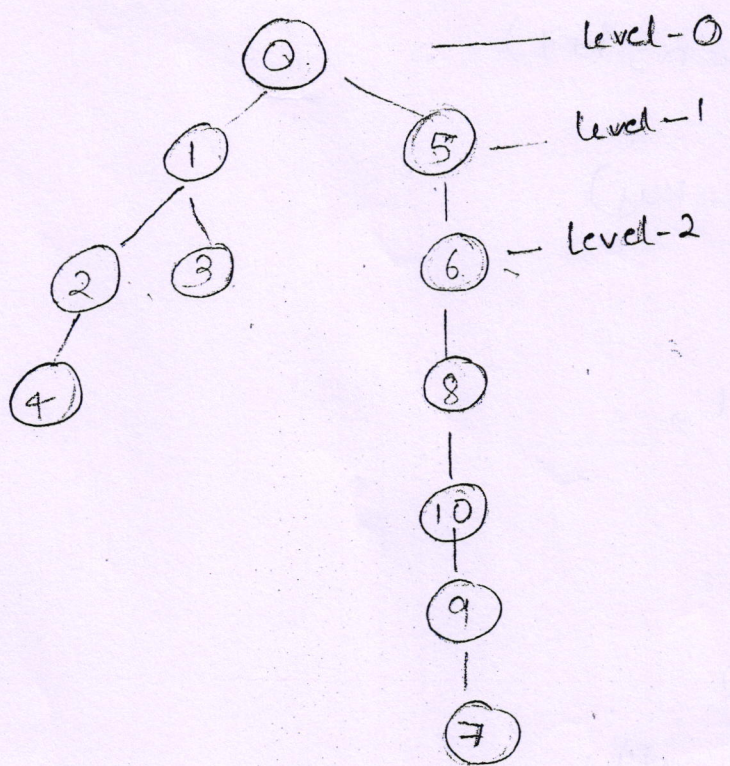 0 level-0
1 5 level-1
2 3 6 level-2
4 8
10
9
7